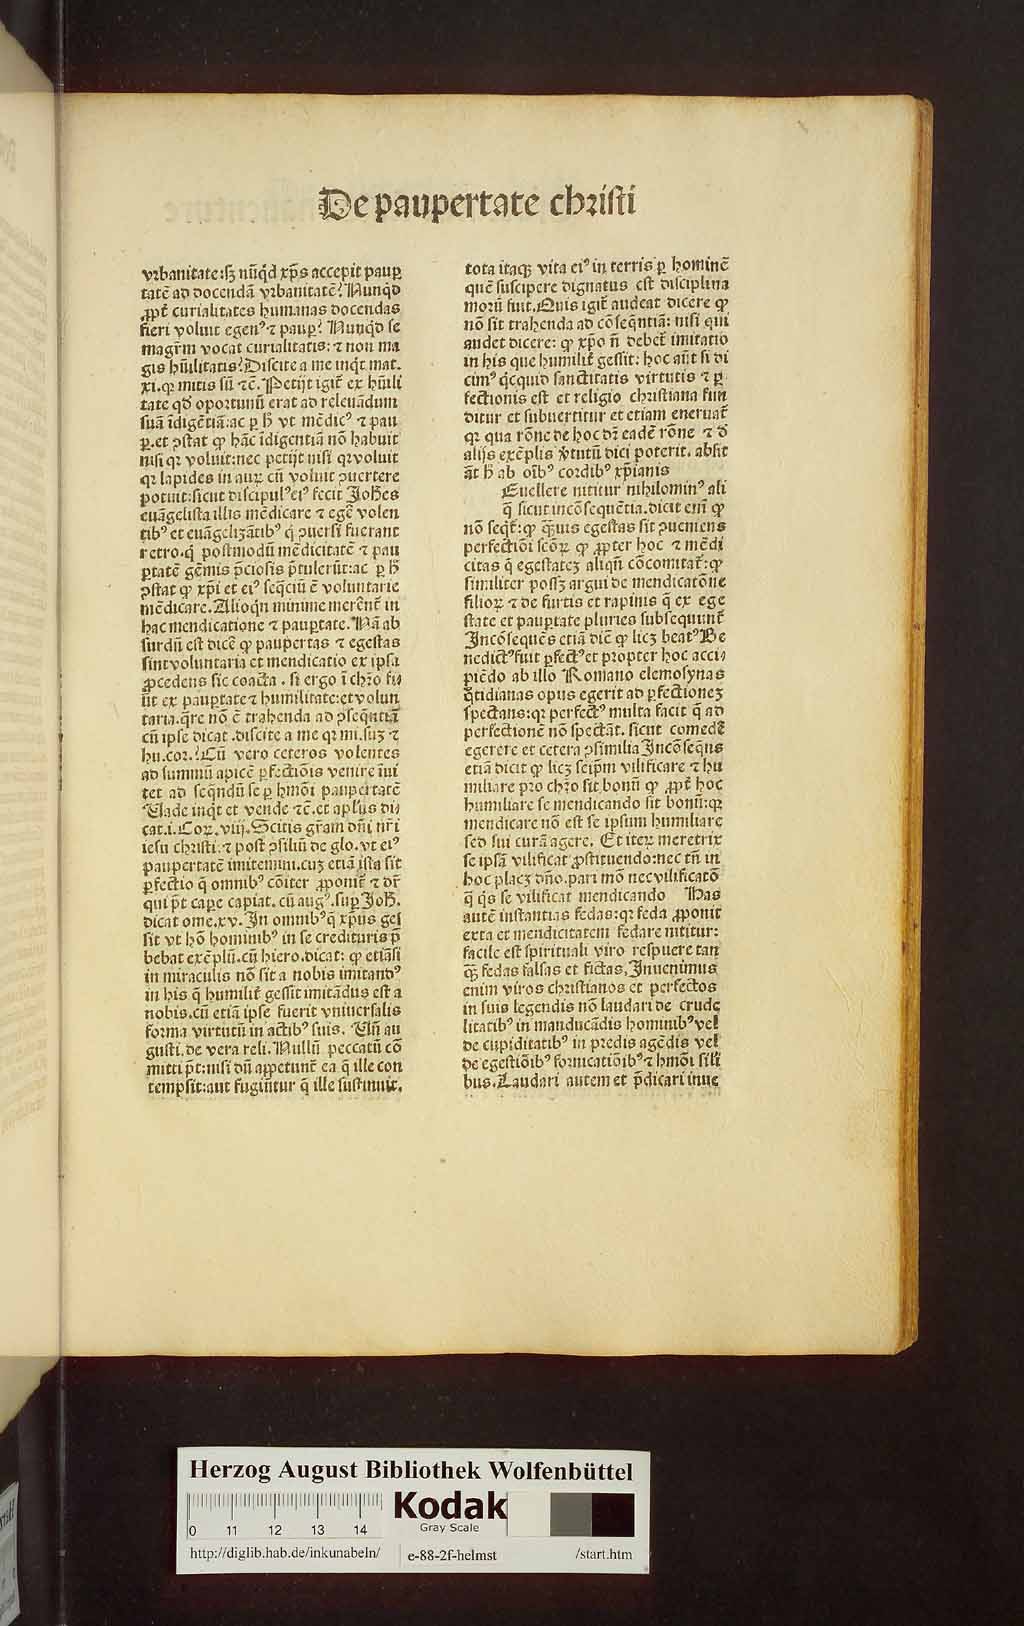 De paupertate christi
vrbanitate:sꝫ nũq̃d xp̃s accepit pauꝑ
tatẽ ad docendã vrbanitatẽ? Nunq̃d
ꝓpt̃ curialitates humanas docendas
fieri voluit egenꝰ ⁊ pauꝑ? Nunq̃d se
magr̃m vocat curialitatis: ⁊ non ma
gis hũilitatis? Discite a me inq̃t mat.
xi. qꝛ mitis sũ ⁊c̃. Petijt igit̃ ex hũili
tate qd̃ oportunũ erat ad releuãdum
suã ĩdigẽtiã: ac ꝑ h̃ vt mẽdicꝰ ⁊ pau
ꝑ. et ꝯstat ꝙ hãc ĩdigentiã nõ habuit
nisi qꝛ voluit: nec petijt nisi qꝛ voluit
qꝛ lapides in auꝝ cũ voluit ꝯuertere
potuit: sicut discipulꝰ eiꝰ fecit Joh̃es
euãgelista illis mẽdicare ⁊ egẽ volen
tibꝰ et euãgelizãtibꝰ q̃ ꝯuersi fuerant
retro. q̃ postmodũ mẽdicitatẽ ⁊ pau
ꝑtatẽ gẽmis p̃ciosis p̃tulerũt: ac ꝑ h̃
ꝯstat ꝙ xp̃i et eiꝰ seq̃ciũ ẽ voluntarie
mẽdicare. Alioq̃n minime merẽnt̃ in
hac mendicatione ⁊ pauꝑtate. Nã ab
surdũ est dicẽ ꝙ paupertas ⁊ egestas
sint voluntaria et mendicatio ex ipsa
ꝓcedens sic coacta. si ergo ĩ chr̃o fu
ũt ex pauꝑtate ⁊ humilitate: et volun
taria. q̃re nõ ẽ trahenda ad ꝯseq̃ntiã
cũ ipse dicat. discite a me qꝛ mi. suꝫ ⁊
hu. cor.? Cũ vero ceteros volentes
ad summũ apicẽ ꝑfectiõis venire ĩui
tet ad seq̃ndũ se ꝑ hmõi pauꝑtatẽ
Vade inq̃t et vende ⁊c̃. et apl̃us di
cat. i. Coꝝ. viij. Scitis gr̃am dñi nr̃i
iesu christi. ⁊ post ꝯsiliũ de glo. vt eiꝰ
paupertatẽ imitemini. cuꝫ etiã ista sit
ꝑfectio q̃ omnibꝰ cõiter ꝓponit̃ ⁊ dr̃
qui p̃t caꝑe capiat. cũ augꝰ. suꝑ Joh̃.
dicat ome. xv. In omnibꝰ q̃ xp̃us ges
sit vt hõ hominibꝰ in se credituris p̃
bebat exẽplũ. cũ hiero. dicat: ꝙ etiãsi
in miraculis nõ sit a nobis imitandꝰ
in his q̃ humilit̃ gessit imitãdus est a
nobis. cũ etiã ipse fuerit vniuersalis
forma virtutũ in actibꝰ suis. Vñ au
gusti. de vera reli. Nullũ peccatũ cõ
mitti p̃t: nisi dũ appetunt̃ ea q̃ ille con
tempsit: aut fugiũtur q̃ ille sustinuit.
tota itaqꝫ vita eiꝰ in terris ꝑ hominẽ
quẽ suscipere dignatus est disciplina
morũ fuit. Quis igit̃ audeat dicere ꝙ
nõ sit trahenda ad cõseq̃ntiã: nisi qui
audet dicere: ꝙ xp̃o ñ debet̃ imitatio
in his que humilit̃ gessit: hoc aũt si di
cimꝰ q̃cquid sanctitatis virtutis ⁊ ꝑ
fectionis est et religio christiana fun
ditur et subuertitur et etiam eneruat̃
qꝛ qua rõne de hoc dr̃ eadẽ rõne ⁊ d̃
alijs exẽplis ṽtutũ dici poterit. absit
ãt h̃ ab oĩbꝰ cordibꝰ xp̃ianis
Euellere nititur nihilominꝰ ali
q̃ sicut incõsequẽtia. dicit em̃ ꝙ
nõ seqt̃: ꝙ qꝫuis egestas sit ꝯueniens
perfectiõi scõꝝ ꝙ ꝓpter hoc ⁊ mẽdi
citas q̃ egestateꝫ aliqñ cõcomitat̃: ꝙ
similiter possꝫ argui de mendicatõne
filioꝝ ⁊ de furtis et rapinis q̃ ex ege
state et pauꝑtate pluries subsequunt̃
Incõsequẽs etiã dic̃ ꝙ licꝫ beatꝰ Be
nedictꝰ fuit ꝑfectꝰ et propter hoc acci
piẽdo ab illo Romano elemosynas
q̃tidianas opus egerit ad ꝑfectioneꝫ
spectans: qꝛ perfectꝰ multa facit q̃ ad
perfectionẽ nõ spectãt. sicut comedẽ
egerere et cetera ꝯsimilia Incõseq̃ns
etiã dicit ꝙ licꝫ seip̃m vilificare ⁊ hu
miliare pro chr̃o sit bonũ ꝙ ꝓpt̃ hoc
humiliare se mendicando sit bonũ: qꝛ
mendicare nõ est se ipsum humiliare
sed sui curã agere. Et iteꝝ meretrix
se ipsã vilificat ꝓstituendo: nec tñ in
hoc placꝫ dño. pari mõ nec vilificatõ
q̃ q̃s se vilificat mendicando Has
autẽ instantias fedas: qꝛ feda ꝓponit
exta et mendicitatem fedare nititur:
facile est spirituali viro respuere tan
qꝫ fedas falsas et fictas, Inuenimus
enim viros christianos et perfectos
in suis legendis nõ laudari de crude
litatibꝰ in manducãdis hominibꝰ vel
de cupiditatibꝰ in predis agẽdis vel
de egestiõibꝰ fornicatiõibꝰ ⁊ hmõi sili
bus. Laudari autem et p̃dicari inue
Herzog August Bibliothek Wolfenbüttel
0 11 12 13 14
Kodak
Gray Scale
http://diglib.hab.de/inkunabeln/ e-88-2f-helmst /start.htm